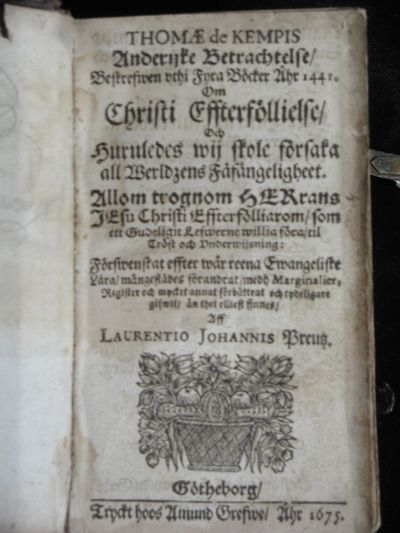 THOMÆ de KEMPIS
Anderijke Betrachtelse/
Beskrefwen vthi Fyra Böcker Åhr 1441.
Om
Christi Effterföllielse/
Och
Huruledes wij skole försaka
all Werldzens Fåfängeligheet.
Allom trognom HERrans
JEsu Christi Effterfölliarom/ som
ett Gudeligit Lefwerne willia föra/ til
Tröst och Vnderwijsning:
Förswenskat effter wår reena Ewangeliske
Lära/ mångestädes förandrat/ medh Marginalier,
Register och mycket annat förbättrat och tydeligare
giswit/ än thet elliest finnes/
Aff
LAURENTIO JOHANNIS Preutz.
Götheborg/
Tryckt hoos Amund Grefwe/ Åhr 1675.